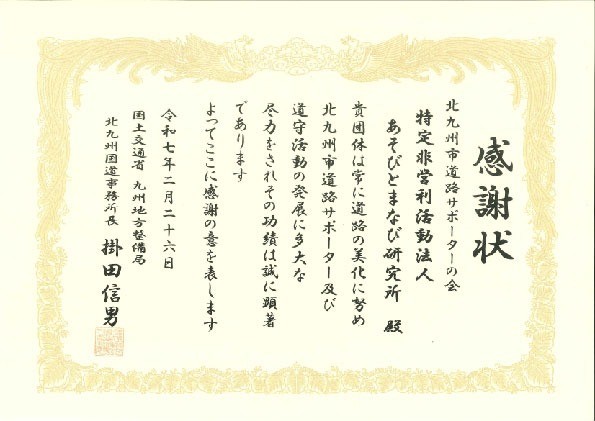 感謝状
北九州市道路サポーターの会
特定非営利活動法人
あそびとまなび研究所 殿
貴団体は常に道路の美化に努め
北九州市道路サポーター及び
道守活動の発展に多大な
尽力をされその功績は誠に顕著
であります
よってここに感謝の意を表します
令和七年二月二十六日
国土交通省 九州地方整備局
北九州国道事務所長 掛田信男